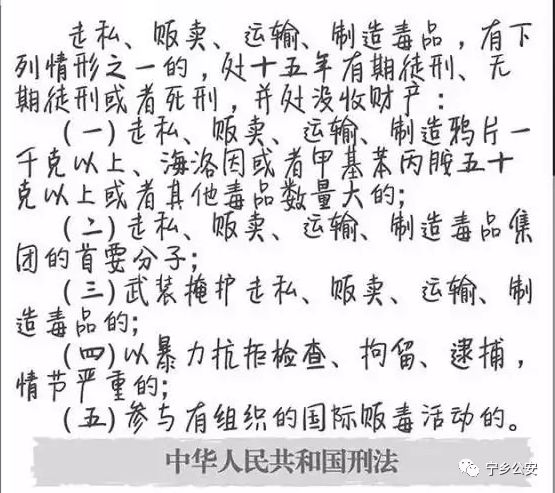 走私、贩卖、运输、制造毒品，有下
列情形之一的，处十五年有期徒刑、无
期徒刑或者死刑，并处没收财产：
(一)走私、贩卖、运输、制造鸦片一
千克以上、海洛因或者甲基苯丙胺五十
克以上或者其他毒品数量大的;
(二)走私、贩卖、运输、制造毒品集
团的首要分子;
(三)武装掩护走私、贩卖、运输、制
造毒品的;
(四)以暴力抗拒检查、拘留、逮捕，
情节严重的;
(五)参与有组织的国际贩毒活动的。
中华人民共和国刑法
宁乡公安